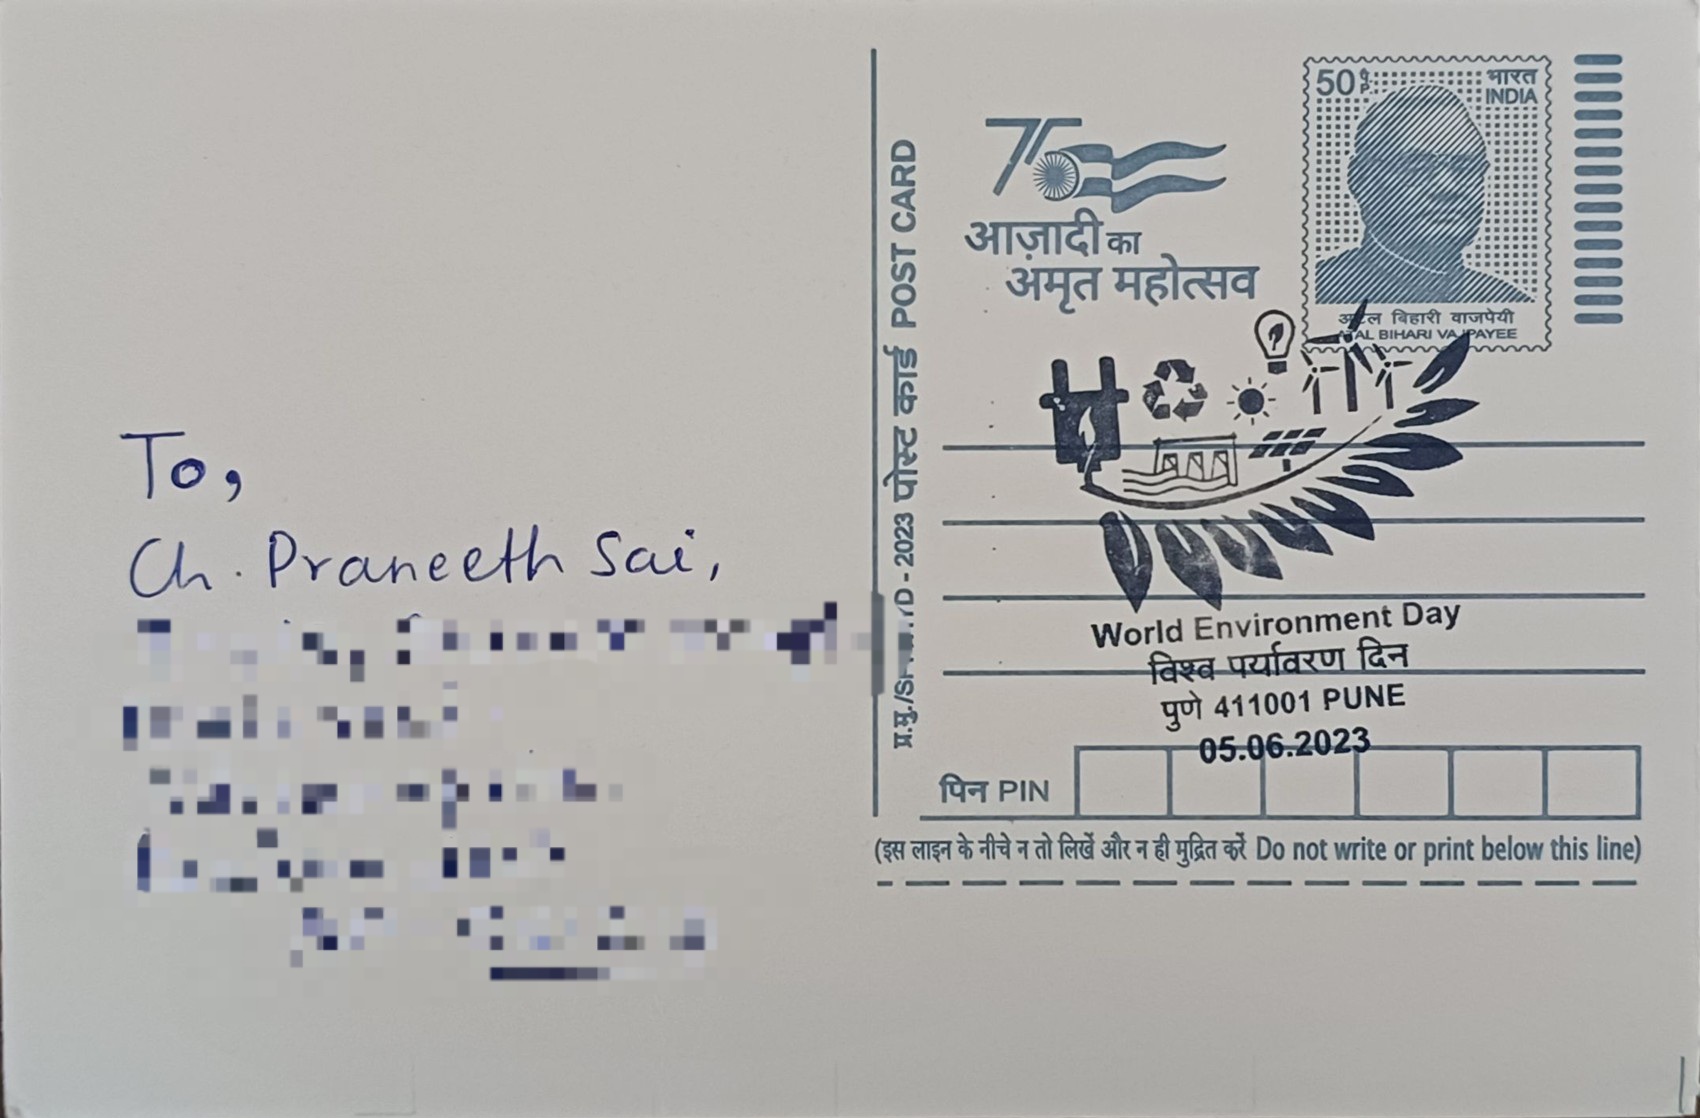 To,
Ch. Praneeth Sai,
प्र.मु./ - 2023 पोस्ट कार्ड POST CARD
75
आज़ादी का
अमृत महोत्सव
50 पै. P.
भारत
INDIA
अटल बिहारी वाजपेयी
ATAL BIHARI VAJPAYEE
World Environment Day
विश्व पर्यावरण दिन
पुणे 411001 PUNE
05.06.2023
पिन PIN
(इस लाइन के नीचे न तो लिखें और न ही मुद्रित करें Do not write or print below this line)